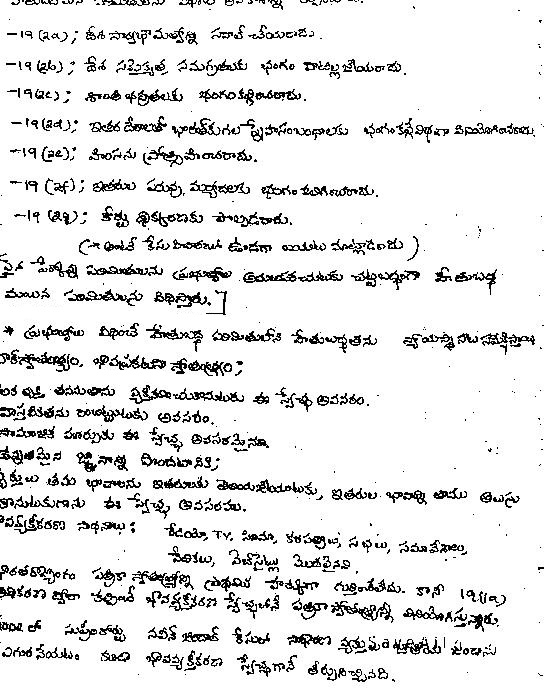 -19 (2a) ; దేశ సార్వభౌమత్వాన్ని సవాల్ చేయరాదు.
-19 (2b) ; దేశ సమైక్యత, సమగ్రతలకు భంగం వాటిల్ల జేయరాదు.
-19(2c) ; శాంతి భద్రతలకు భంగం కల్గించరాదు.
-19(2d) ; ఇతర దేశాలతో భారత్‌కు గల స్నేహసంబంధాలకు భంగం కల్గే విధంగా వినియోగించరాదు.
-19 (2e) ; హింసను ప్రోత్సహించరాదు.
-19 (2f) ; ఇతరుల పరువు, మర్యాదలకు భంగం కలిగించరాదు.
-19 (2g) ; కోర్టు ధిక్కారణకు పాల్పడరాదు.
(→ అంటే కేసు విచారణలో ఉండగా బయట మాట్లాడరాదు)
పైన పేర్కొన్న పరిమితులను ప్రభుత్వాలు అమలుపరచుటకు చట్టబద్ధంగా హేతుబద్ధ
మయిన పరిమితులను విధిస్తారు.]
* ప్రభుత్వాలు విధించే హేతుబద్ధ పరిమితులలోని హేతుబద్ధతను న్యాయస్థానాలు సమీక్షిస్తాయి
వాక్‌స్వాతంత్ర్యం, భావప్రకటనా స్వాతంత్ర్యం ;
ఒక వ్యక్తి తనను తాను వ్యక్తీకరించుకొనుటకు ఈ స్వేచ్ఛ అవసరం.
వాస్తవికతను రాబట్టుటకు అవసరం.
సామాజిక మార్పుకు ఈ స్వేచ్ఛ అవసరమైనా
జ్ఞానాన్ని పొందటానికి ;
వ్యక్తులు తమ భావాలను ఇతరులకు తెలియజేయుటకు, ఇతరుల భావాన్ని తాము తెలుసు
కొనుటకుగాను ఈ స్వేచ్ఛ అవసరం.
భావవ్యక్తీకరణ సాధనాలు : రేడియో, TV, సినిమా, కరపత్రాలు, సభలు, సమావేశాలు,
వేదికలు, వెబ్‌సైట్లు మొదలైనవి.
భారతరాజ్యాంగం పత్రికా స్వాతంత్ర్యాన్ని ప్రాథమిక హక్కుగా గుర్తించలేదు. కానీ 19(1)(a)
అధికరణ ద్వారా భావవ్యక్తీకరణ స్వేచ్ఛలోనే పత్రికా స్వాతంత్ర్యాన్ని వినియోగిస్తున్నారు.
లో సుప్రీంకోర్టు నవీన్ జిందాల్ కేసులో సాధారణ వ్యక్తులు జాతీయ జెండాను
ఎగురవేయటం కూడా భావవ్యక్తీకరణ స్వేచ్ఛగానే తీర్పునిచ్చినది.